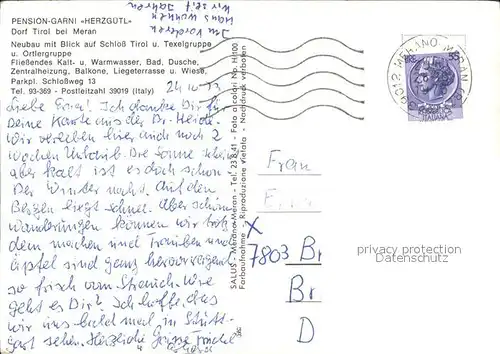 PENSION-GARNI «HERZGUTL»
Dorf Tirol bei Meran
Neubau mit Blick auf Schloß Tirol u. Texelgruppe
u. Ortlergruppe
Fließendes Kalt- u. Warmwasser, Bad, Dusche,
Zentralheizung, Balkone, Liegeterrasse u. Wiese,
Parkpl. Schloßweg 13
Tel. 93-369 - Postleitzahl 39019 (Italy)
Im vorderen
Haus wohnen
wir seit
Jahren
24.10.73
Liebe! Ich danke Dir für
Deine Karte aus der Dr. Heide.
Wir verleben hier auch noch 2
Wochen Urlaub. Die Sonne scheint
aber kalt ist es doch schon
Der Winder naht. Auf den
Bergen liegt Schnee. Aber schöne
Wanderungen können wir trotz
dem machen und Trauben und
Äpfel sind ganz hervorragend
so frisch vom Strauch. Wie
geht es Dir? Ich hoffe, dass
wir uns bald mal in Stutt-
gart sehen. Herzliche Grüsse
SALUS - Merano-Meran - Tel. 23 8 41 - Foto a colori No. H/100
Farbaufnahme - Riproduzione vietata - Nachdruck verboten
39012 MERANO - MERAN
LIRE 55
ITALIANE
Frau
X
7803 Br
Br
D
privacy protection
Datenschutz